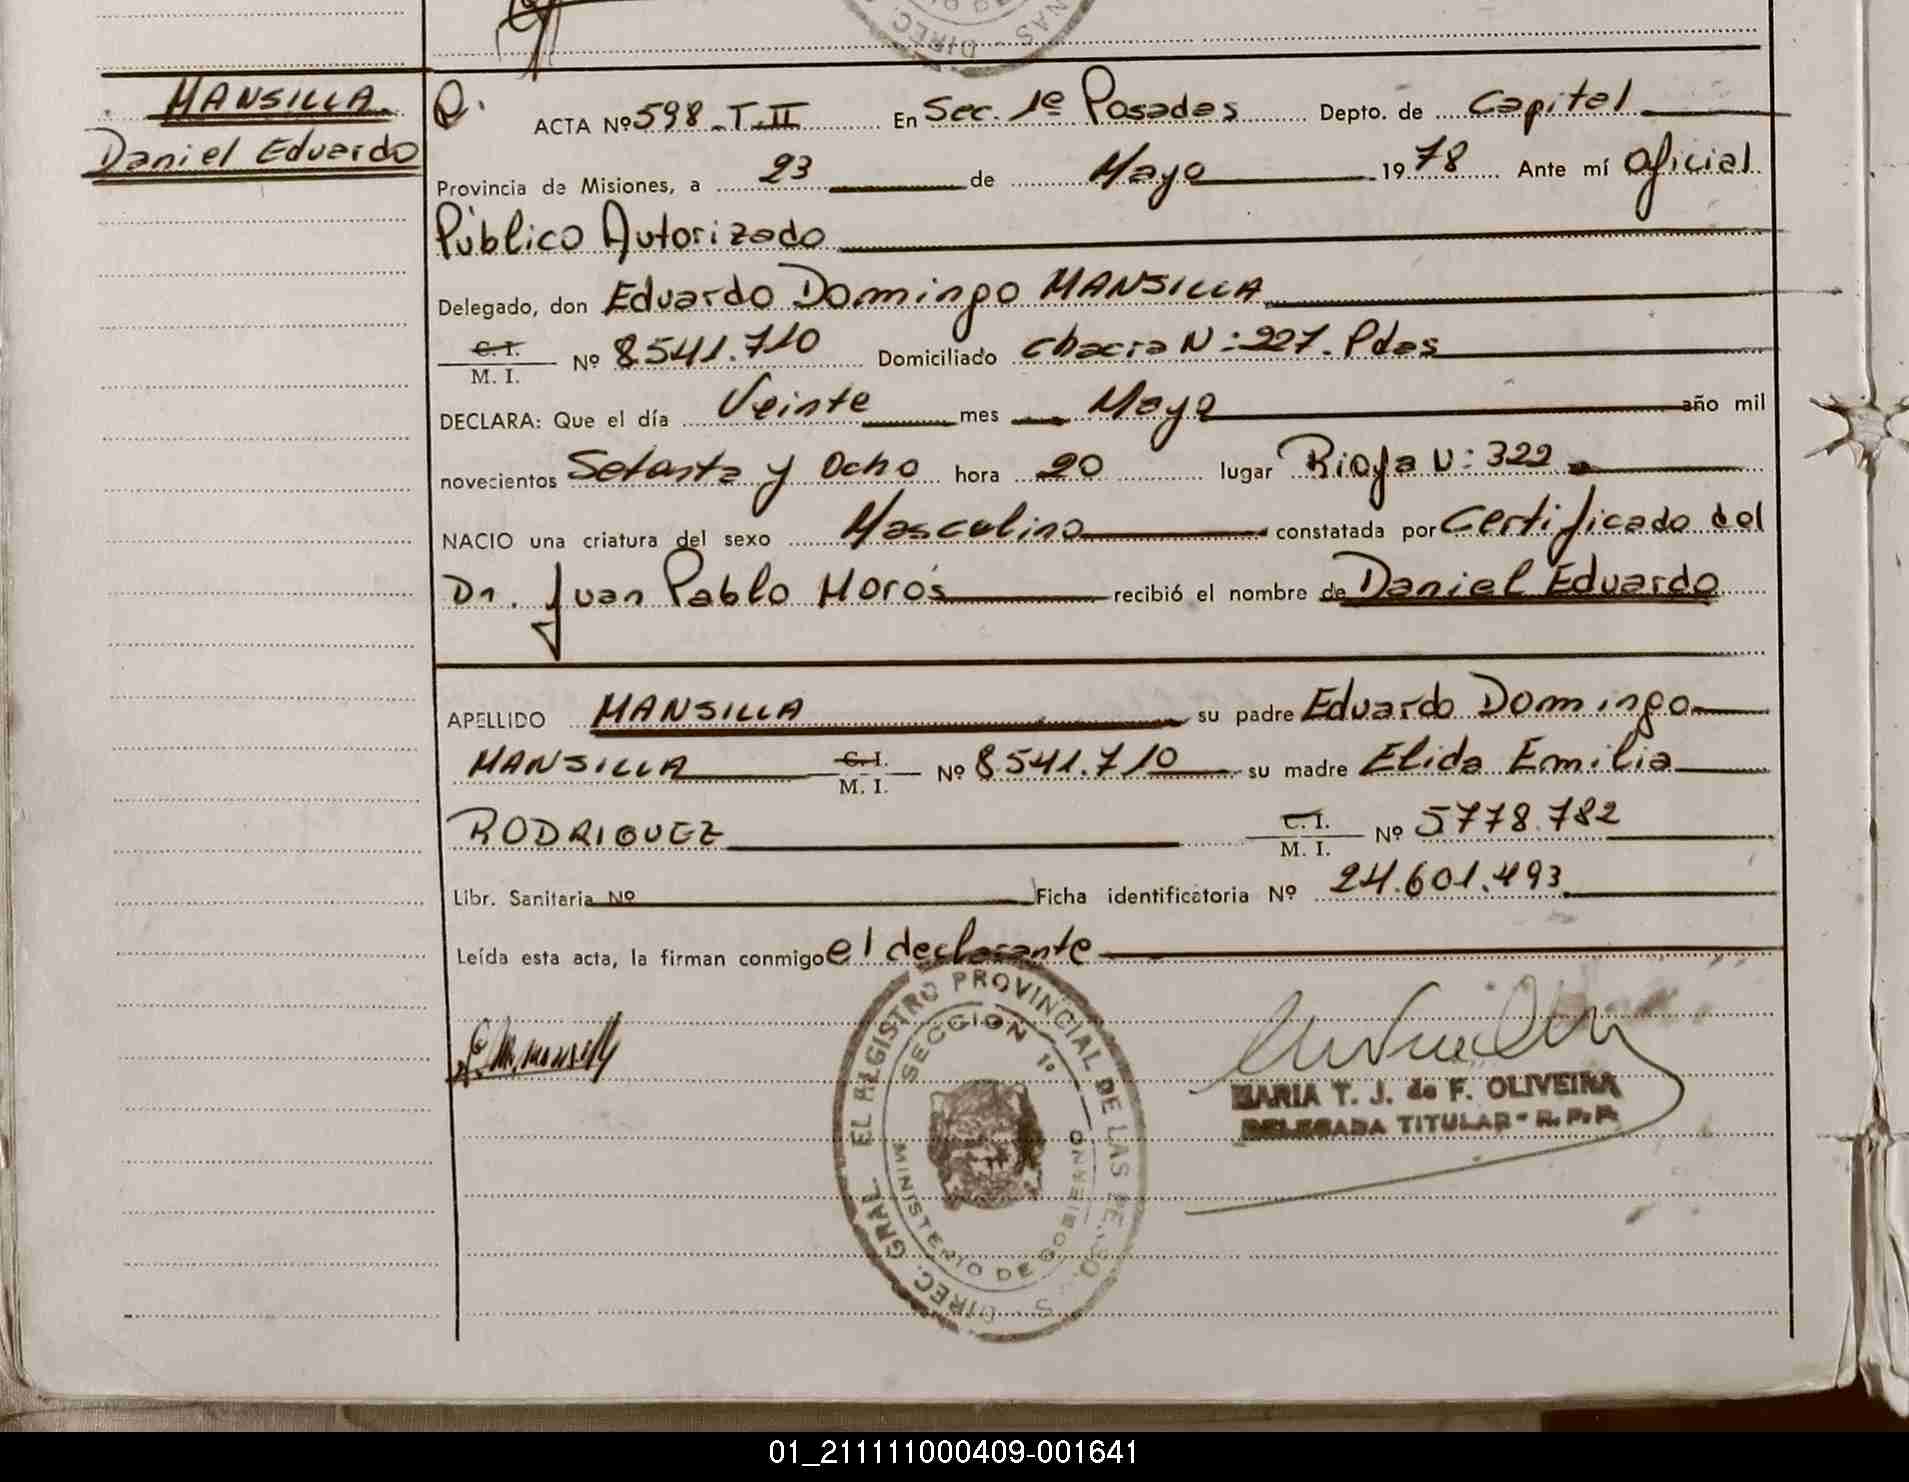 MANSILLA
Daniel Eduardo
ACTA Nº 598 - T. II En Sec. 1º Posadas Depto. de Capital
Provincia de Misiones, a 23 de Mayo 1978 Ante mí Oficial
Público Autorizado
Delegado, don Eduardo Domingo MANSILLA
C. I. M. I. Nº 8.541.710 Domiciliado Chacra N: 227. Pdas
DECLARA: Que el día Veinte mes Mayo año mil
novecientos Setenta y Ocho hora 20 lugar Rioja N: 322
NACIO una criatura del sexo Masculino constatada por Certificado del
Dr. Juan Pablo Morós recibió el nombre de Daniel Eduardo
APELLIDO MANSILLA su padre Eduardo Domingo
MANSILLA C. I. M. I. Nº 8.541.710 su madre Elida Emilia
RODRIGUEZ C. I. M. I. Nº 5.778.782
Libr. Sanitaria Nº Ficha identificatoria Nº 24.601.493
Leída esta acta, la firman conmigo el declarante
DIREC. GRAL. EL REGISTRO PROVINCIAL DE LAS
SECCION 1º
MINISTERIO DE GOBIERNO
MARIA T. J. de F. OLIVEIRA
DELEGADA TITULAR - R. P. P.
01_211111000409-001641